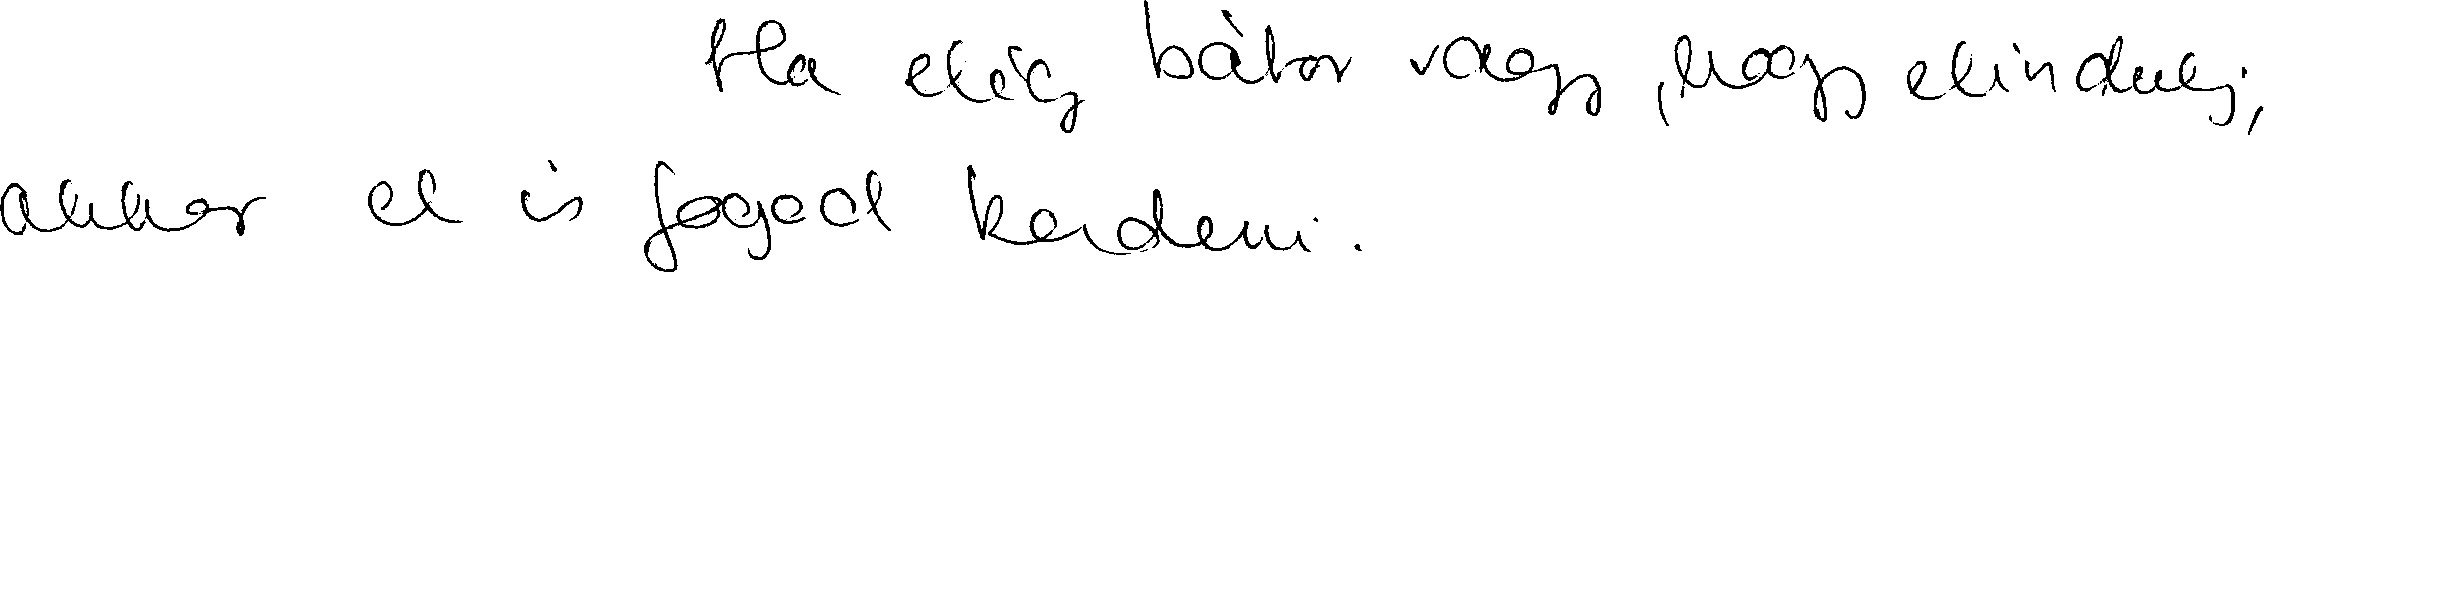 Ha elég bátor vagy, hogy elindulj,
akkor el is fogod kezdeni.